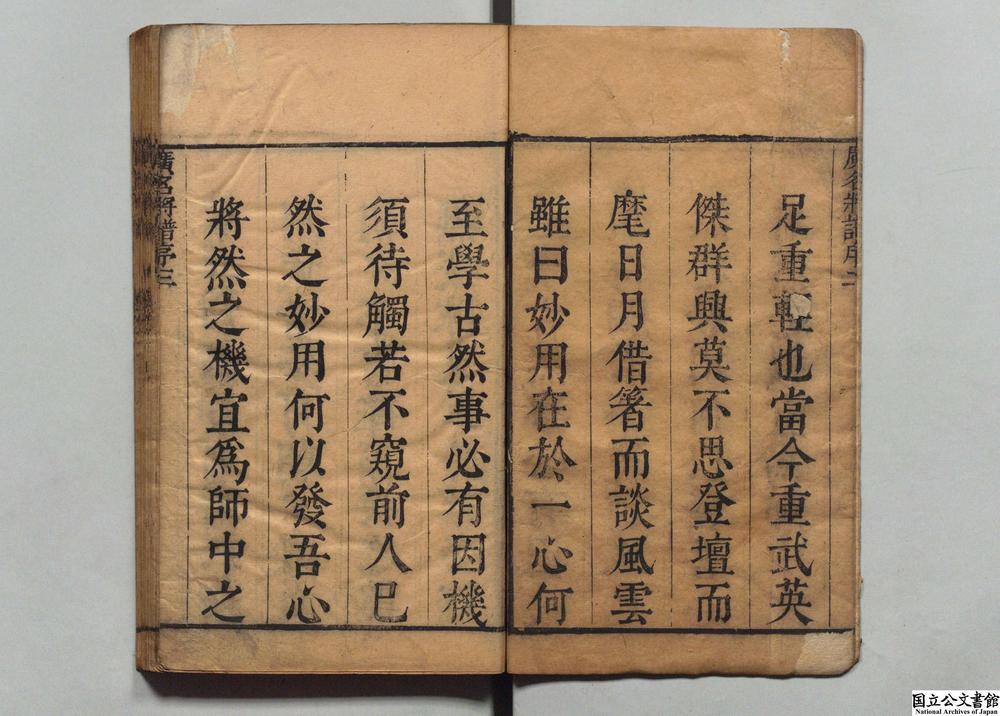 廣名將譜序二
足重輕也當今重武英
傑群興莫不思登壇而
麾日月借箸而談風雲
雖曰妙用在於一心何
至學古然事必有因機
須待觸若不窺前人已
然之妙用何以發吾心
將然之機宜爲師中之
廣名將譜序三
国立公文書館
National Archives of Japan